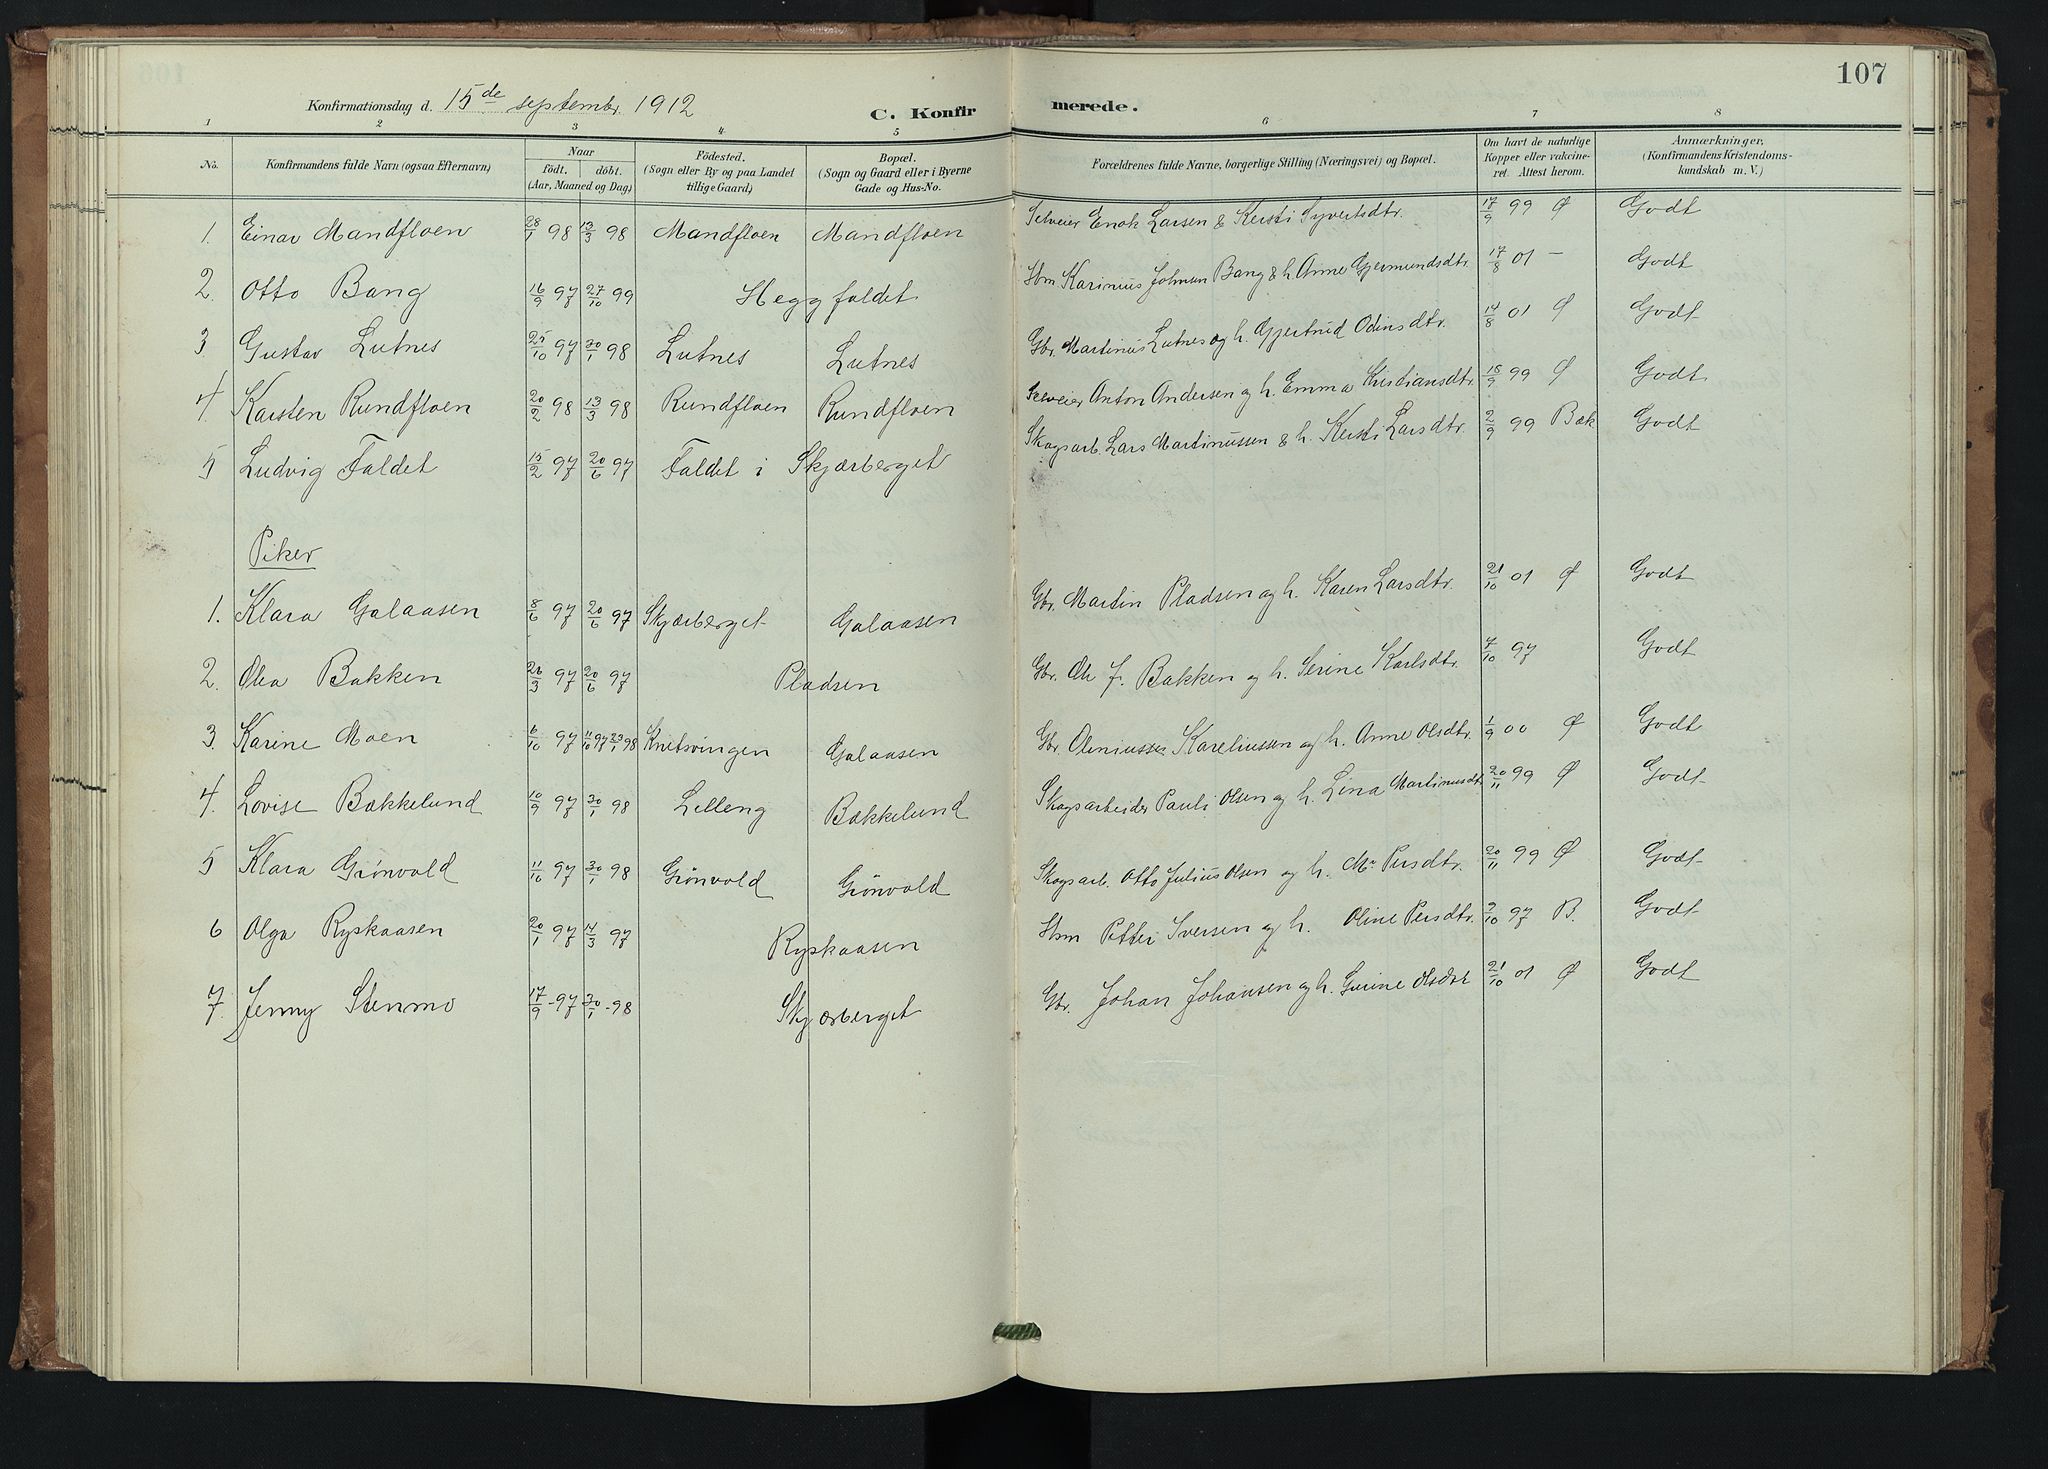 107
Konfirmationsdag d. 15de septembr. 1912 C. Konfirmerede.
1 2 3 4 5 6 7 8
No. Konfirmandens fulde Navn (ogsaa Efternavn) Naar födt. döbt. (Aar, Maaned og Dag) Födested. (Sogn eller By og paa Landet tillige Gaard) Bopæl. (Sogn og Gaard eller i Byerne Gade og Hus-No. Forældrenes fulde Navne, borgerlige Stilling (Næringsvei) og Bopæl. Om havt de naturlige Kopper eller vakcineret. Attest herom. Anmærkninger, (Konfirmandens Kristendomskundskab m. V.)
1. Einar Mandfloen 28/1 98 13/3 98 Mandfloen Mandfloen Selveier Enok Larsen & Kersti Syvertsdtr. 17/9 99 Ø Godt
2. Otto Bang 16/9 97 27/10 99 Heggfaldet Hsm Karinius Johnsen Bang & h. Anne Gjermundsdtr. 17/8 01 - Godt
3. Gustav Lutnes 25/10 97 30/1 98 Lutnes Lutnes Gbr. Martinius Lutnes og h. Gjertrud Odinsdtr. 14/8 01 Ø Godt
4. Karsten Rundfloen 20/2 98 13/3 98 Rundfloen Rundfloen Selveier Anton Andersen og h. Emma Kristiansdtr. 18/9 99 Ø Godt
5 Ludvig Faldet 15/2 97 20/6 97 Faldet i Skjærberget Skogsarb. Lars Martinussen & h. Kersti Larsdtr. 2/9 99 Bæk Godt
Piker
1. Klara Galaasen 8/6 97 20/6 97 Skjærberget Galaasen Gbr. Martin Pladsen og h. Karen Larsdtr. 21/10 01 Ø Godt
2. Olea Bakken 26/3 97 20/6 97 Pladsen Gbr. Ole J. Bakken og h. Serine Karlsdtr. 7/10 97 Godt
3. Karine Moen 6/10 97 11/10 97 23/1 98 Knetsvingen Galaasen Gbr. Oleniusse Kareliussen og h. Anne Olsdtr. 1/9 00 Ø Godt
4. Lovise Bækkelund 10/9 97 30/1 98 Lilleng Bækkelund Skogsarbeider Pauli Olsen og h. Lina Martinusdtr 20/11 99 Ø Godt
5 Klara Grönvold 11/10 97 30/1 98 Grönvold Grönvold Skogsarb. Otto Julius Olsen og h. Persdtr. 20/11 99 Ø Godt
6 Olga Ryskaasen 20/1 97 14/3 97 Ryskaasen Hsm Petter Iversen og h. Oline Persdtr. 7/10 97 B. Godt
7. Jenny Stenmo 17/9 - 97 30/1 - 98 Skjærberget Gbr. Johan Johansen og h. Gurine Olsdtr 21/10 01 Ø Godt